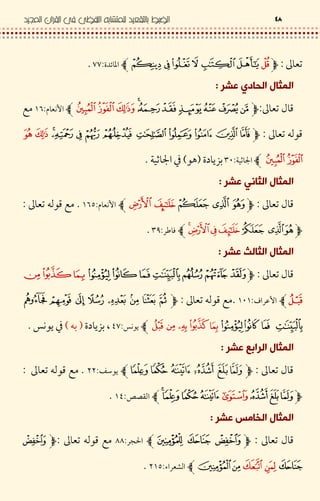 ٤٨ الضبط بالتقعيد للمتشابه اللفظي في القرآن المجيد
تعالى : ﴿ قُلْ يَٰٓأَهْلَ ٱلْكِتَٰبِ لَا تَغْلُوا۟ فِى دِينِكُمْ ﴾ المائدة:٧٧ .
المثال الحادي عشر :
قال تعالى: ﴿ مَّن يُصْرَفْ عَنْهُ يَوْمَئِذٍ فَقَدْ رَحِمَهُۥ وَذَٰلِكَ ٱلْفَوْزُ ٱلْمُبِينُ ﴾ الأنعام:١٦ مع
قوله تعالى : ﴿ فَأَمَّا ٱلَّذِينَ ءَامَنُوا۟ وَعَمِلُوا۟ ٱلصَّٰلِحَٰتِ فَيُدْخِلُهُمْ رَبُّهُمْ فِى رَحْمَتِهِۦ ذَٰلِكَ هُوَ
ٱلْفَوْزُ ٱلْمُبِينُ ﴾ الجاثية:٣٠ بزيادة (هو) في الجاثية .
المثال الثاني عشر :
قال تعالى: ﴿ وَهُوَ ٱلَّذِى جَعَلَكُمْ خَلَٰٓئِفَ ٱلْأَرْضِ ﴾ الأنعام:١٦٥ . مع قوله تعالى :
﴿ هُوَ ٱلَّذِى جَعَلَكُمْ خَلَٰٓئِفَ فِى ٱلْأَرْضِ ﴾ فاطر:٣٩ .
المثال الثالث عشر :
قال تعالى : ﴿ وَلَقَدْ جَآءَتْهُمْ رُسُلُهُم بِٱلْبَيِّنَٰتِ فَمَا كَانُوا۟ لِيُؤْمِنُوا۟ بِمَا كَذَّبُوا۟ مِن
قَبْلُ ﴾ الأعراف:١٠١ .مع قوله تعالى : ﴿ ثُمَّ بَعَثْنَا مِنۢ بَعْدِهِۦ رُسُلًا إِلَىٰ قَوْمِهِمْ فَجَآءُوهُم
بِٱلْبَيِّنَٰتِ فَمَا كَانُوا۟ لِيُؤْمِنُوا۟ بِمَا كَذَّبُوا۟ بِهِۦ مِن قَبْلُ ﴾ يونس:٤٧ ، بزيادة ( به ) في يونس .
المثال الرابع عشر :
قال تعالى : ﴿ وَلَمَّا بَلَغَ أَشُدَّهُۥٓ ءَاتَيْنَٰهُ حُكْمًا وَعِلْمًا ﴾ يوسف:٢٢ . مع قوله تعالى :
﴿ وَلَمَّا بَلَغَ أَشُدَّهُۥ وَٱسْتَوَىٰٓ ءَاتَيْنَٰهُ حُكْمًا وَعِلْمًا ﴾ القصص:١٤ .
المثال الخامس عشر :
قال تعالى : ﴿ وَٱخْفِضْ جَنَاحَكَ لِلْمُؤْمِنِينَ ﴾ الحجر:٨٨ مع قوله تعالى :﴿ وَٱخْفِضْ
جَنَاحَكَ لِمَنِ ٱتَّبَعَكَ مِنَ ٱلْمُؤْمِنِينَ ﴾ الشعراء:٢١٥ .